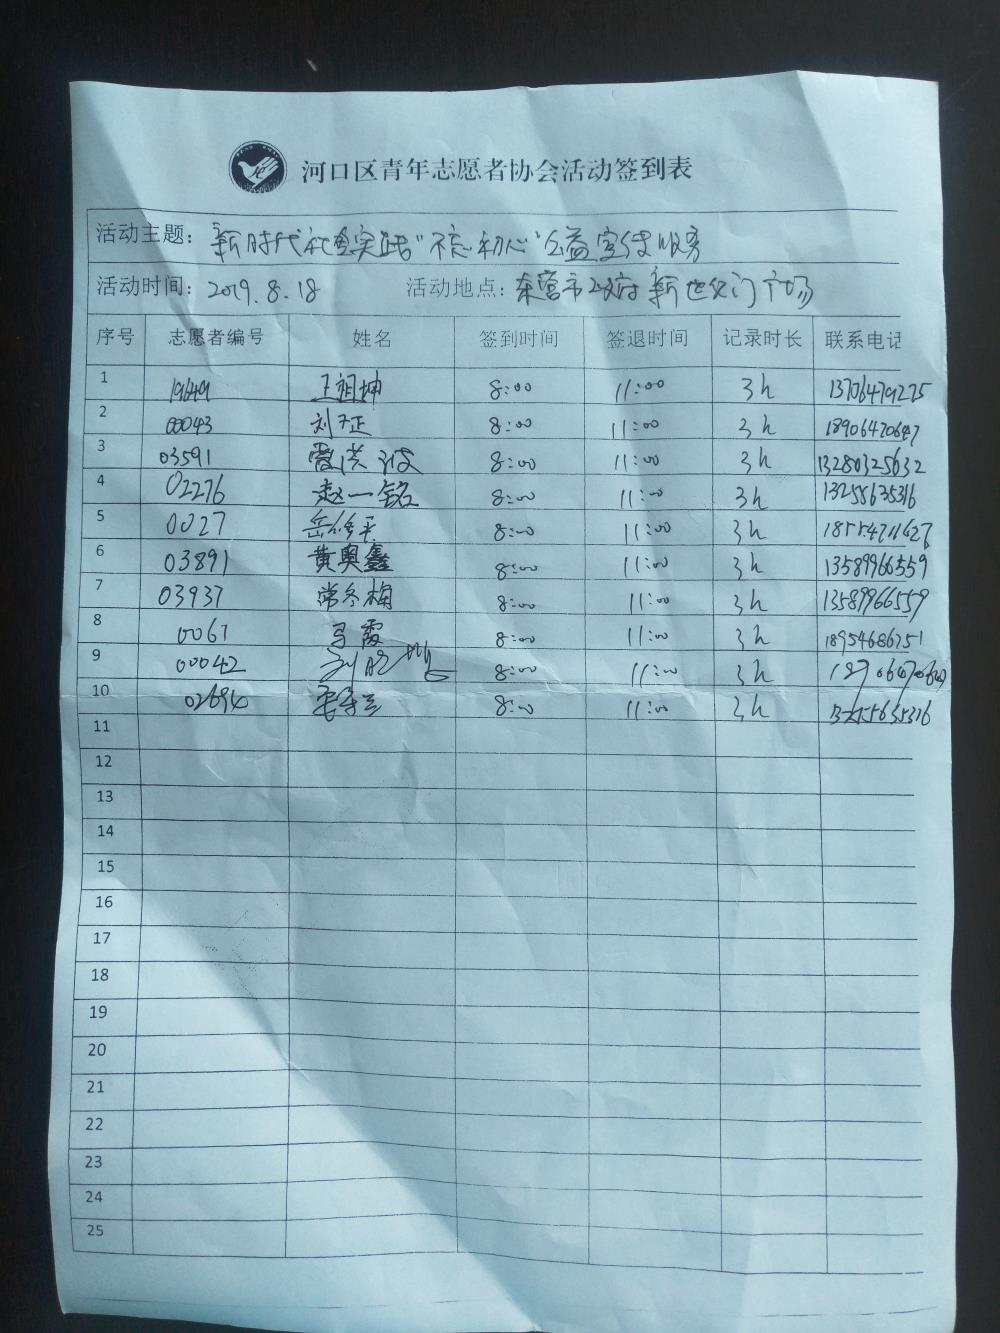 河口区青年志愿者协会活动签到表
活动主题: 新时代社会实践"不忘初心"公益宣传服务
活动时间: 2019.8.18 活动地点: 东营市政府新世纪门广场
序号 志愿者编号 姓名 签到时间 签退时间 记录时长 联系电话
1 19649 王祖坤 8:00 11:00 3h 13706479225
2 00043 刘 正 8:00 11:00 3h 18906470647
3 03591 洪波 8:00 11:00 3h 13280325632
4 02276 赵一铭 8:00 11:00 3h 13255635316
5 0027 岳 8:00 11:00 3h
6 03891 黄奥鑫 8:00 11:00 3h 13589966559
7 03937 常冬梅 8:00 11:00 3h 13589966559
8 0067 马霞 8:00 11:00 3h 18954686751
9 00042 刘 8:00 11:00 3h
10 02694 8:00 11:00 3h
11
12
13
14
15
16
17
18
19
20
21
22
23
24
25